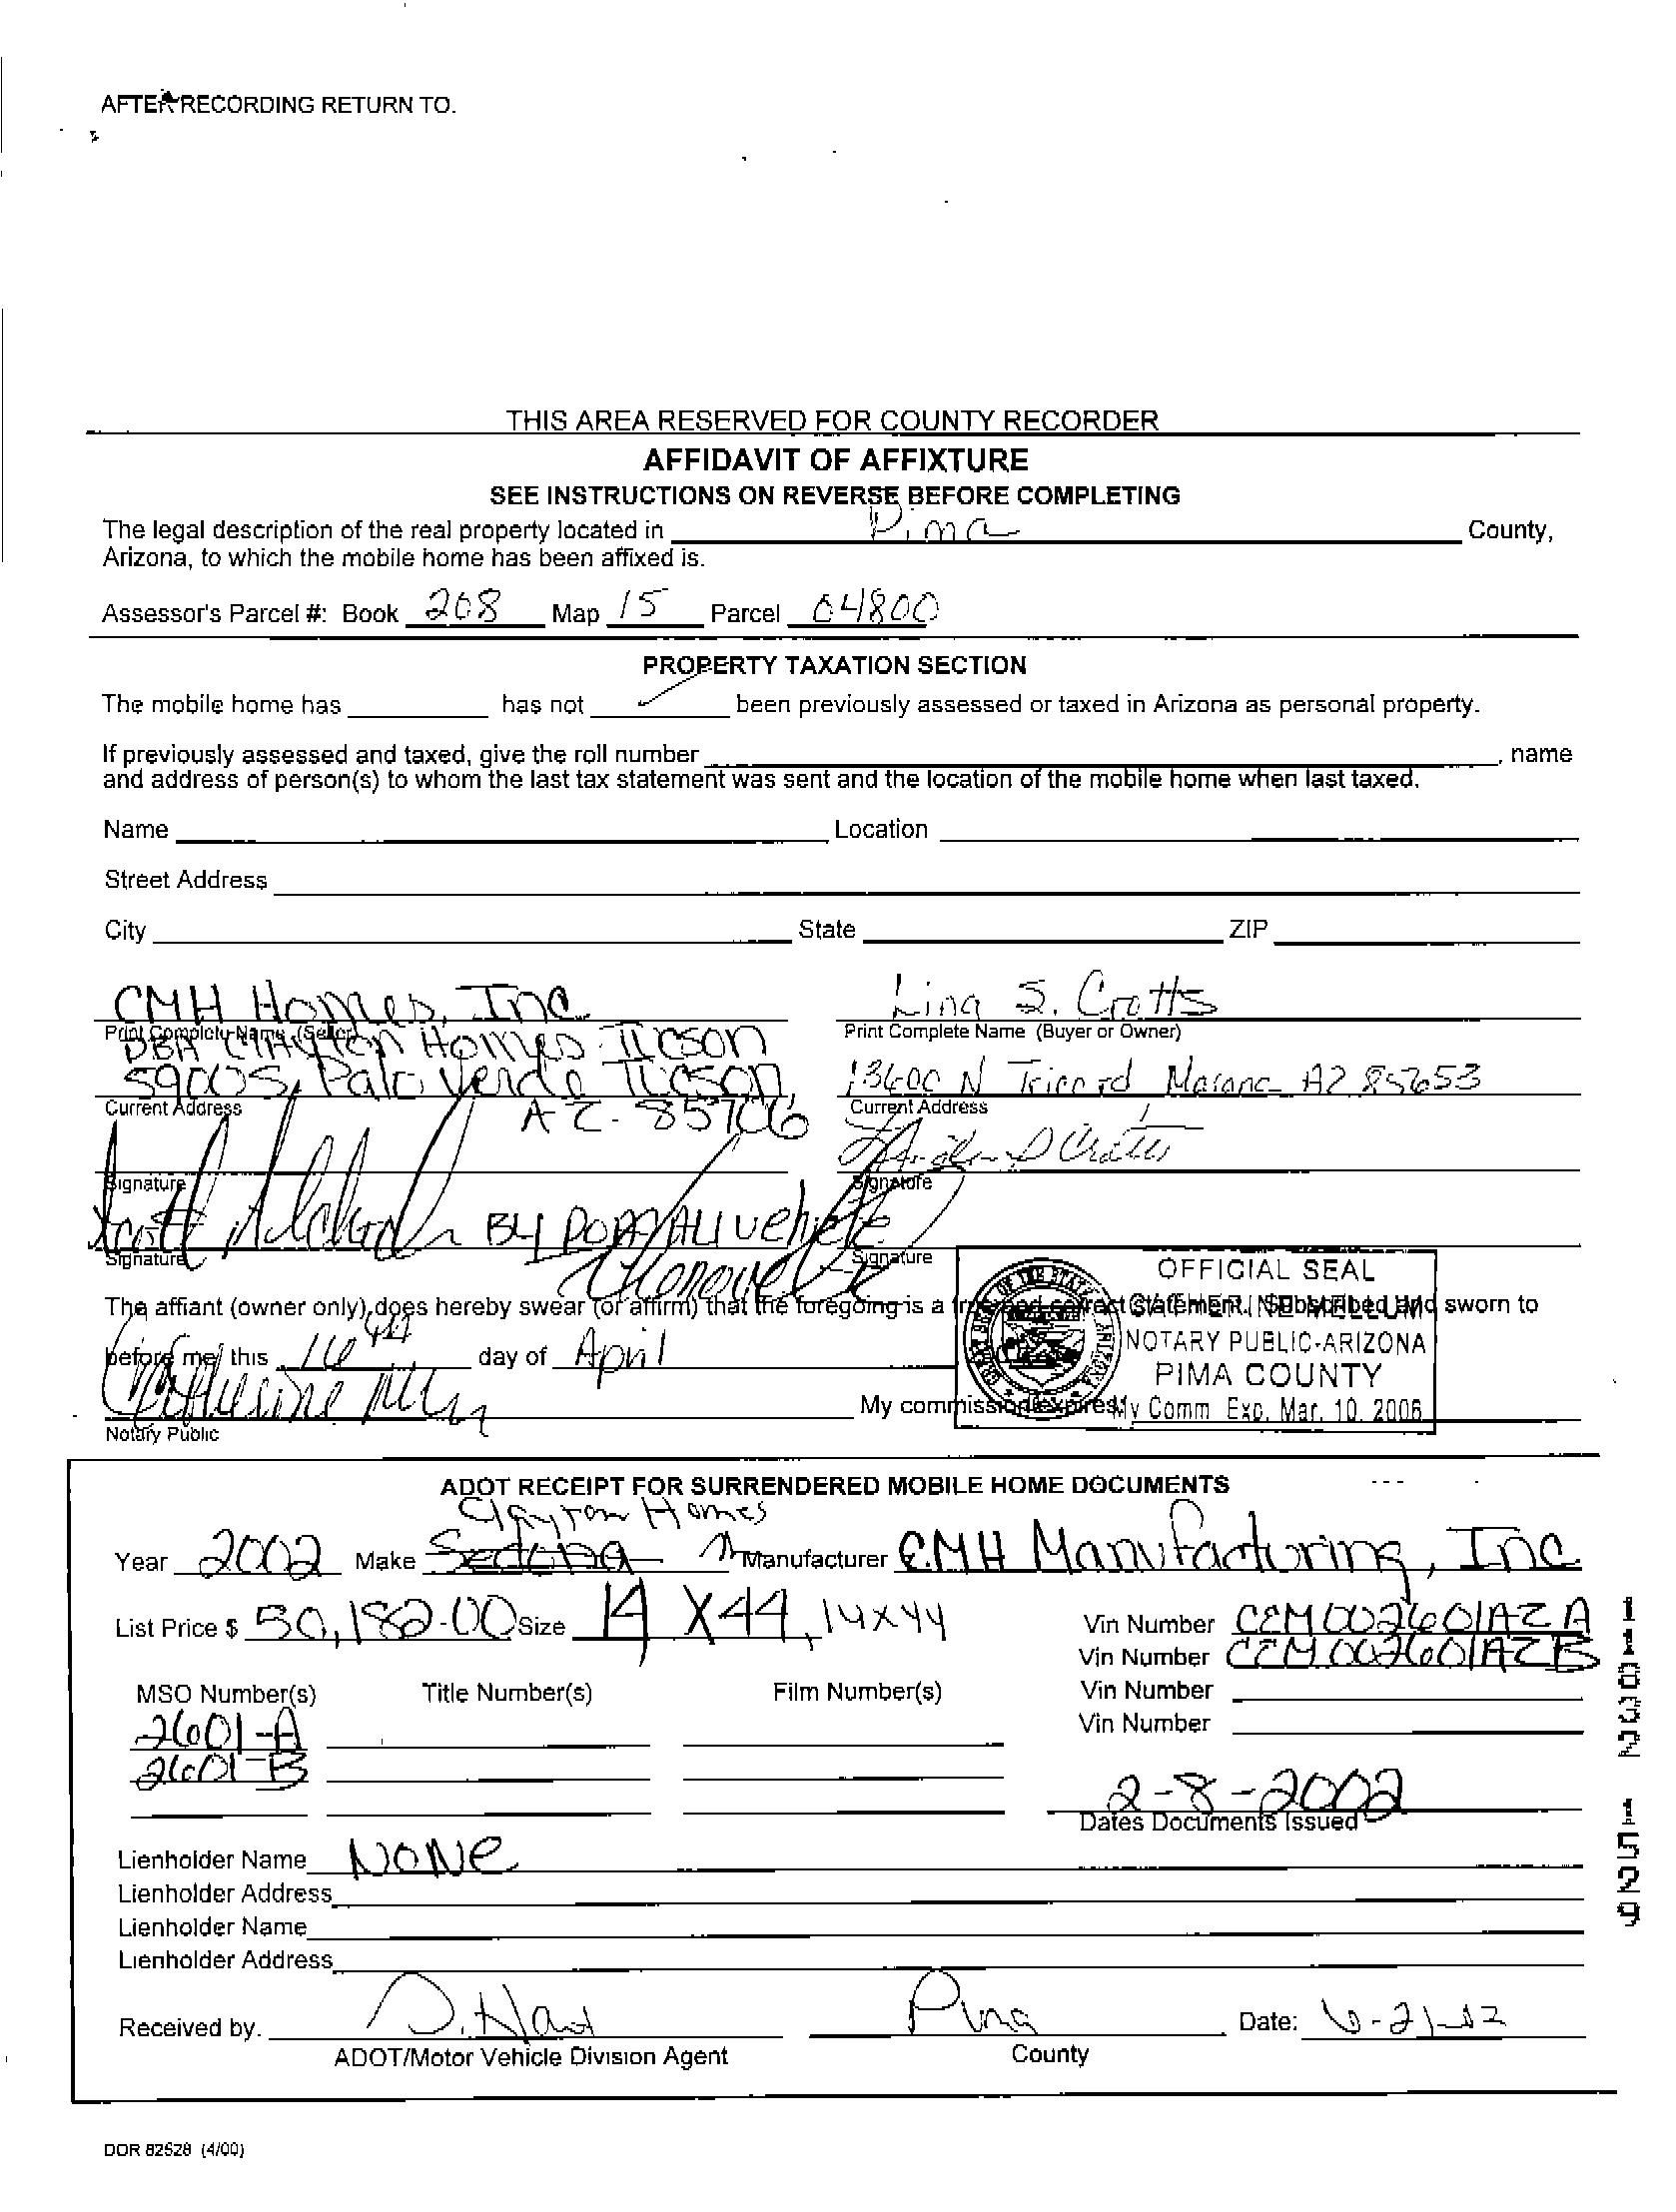 AFTER RECORDING RETURN TO.
THIS AREA RESERVED FOR COUNTY RECORDER
AFFIDAVIT OF AFFIXTURE
SEE INSTRUCTIONS ON REVERSE BEFORE COMPLETING
The legal description of the real property located in Pima County,
Arizona, to which the mobile home has been affixed is.
Assessor's Parcel #: Book 208 Map 15 Parcel 04800
PROPERTY TAXATION SECTION
The mobile home has has not ✓ been previously assessed or taxed in Arizona as personal property.
If previously assessed and taxed, give the roll number , name
and address of person(s) to whom the last tax statement was sent and the location of the mobile home when last taxed.
Name Location
Street Address
City State ZIP
CMH Homes, Inc Lina S. Crotts
Print Complete Name (Seller) Print Complete Name (Buyer or Owner)
DBA Clayton Homes Tucson
5900 S. Palo Verde Tucson, 13600 N Trico rd Marana AZ 85653
Current Address AZ. 85706 Current Address
Signature Signature
By POA
Signature Signature
The affiant (owner only), does hereby swear (or affirm) that the foregoing is a true and correct statement. Subscribed and sworn to
before me, this 16th day of April
My commission expires:
Notary Public
OFFICIAL SEAL
CATHERINE MELLUM
NOTARY PUBLIC-ARIZONA
PIMA COUNTY
My Comm Exp. Mar. 10. 2006
ADOT RECEIPT FOR SURRENDERED MOBILE HOME DOCUMENTS
Clayton Homes
Year 2002 Make Sedona Manufacturer CMH Manufacturing, Inc.
List Price $ 50,182.00 Size 14 X 44, 14x44 Vin Number CEM002601AZA
Vin Number CEM002601AZB
MSO Number(s) Title Number(s) Film Number(s) Vin Number
2601-A Vin Number
2601-B
2-8-2002
Dates Documents Issued
Lienholder Name NONE
Lienholder Address
Lienholder Name
Lienholder Address
Received by. Pima Date: 6-21-02
ADOT/Motor Vehicle Division Agent County
DOR 82528 (4/00)